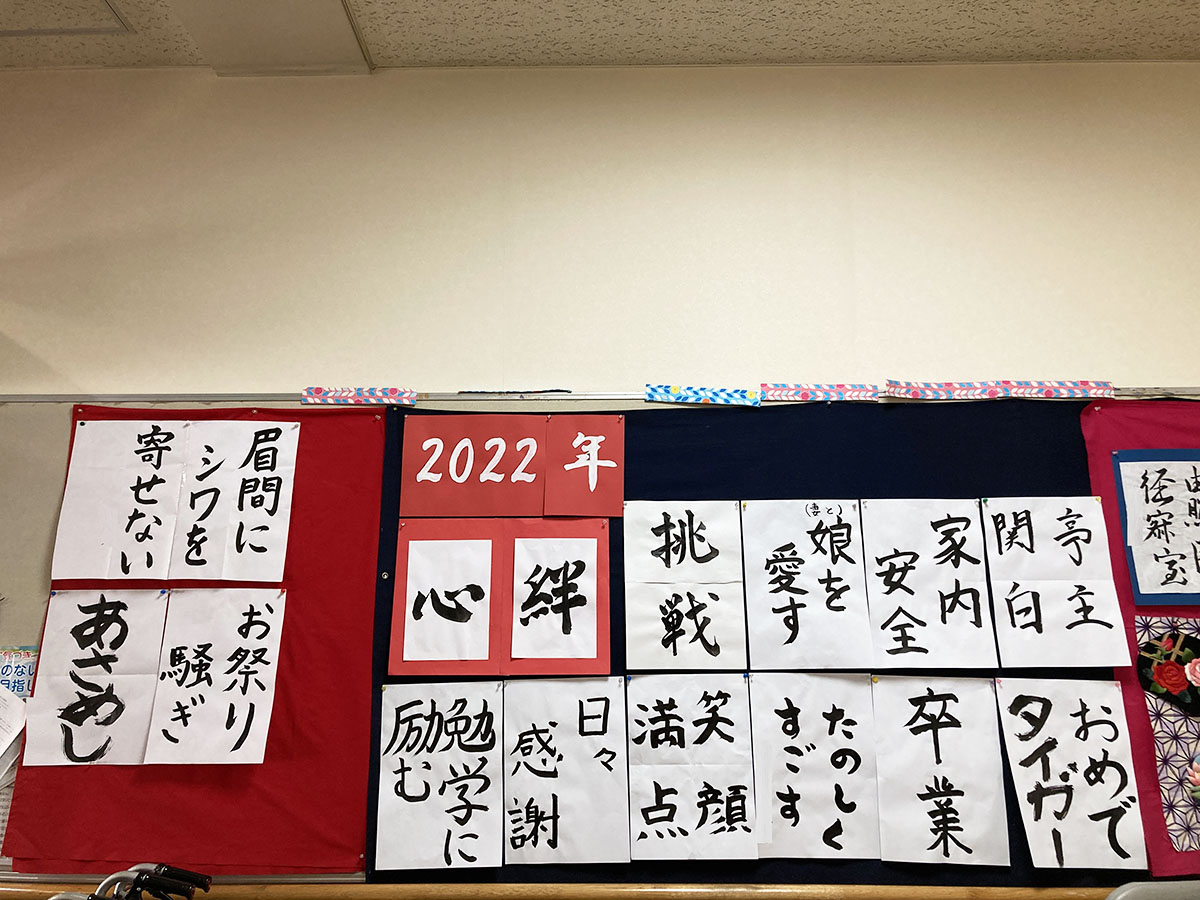 眉間に
シワを
寄せない
お祭り
騒ぎ
あさめし
2022年
絆
心
亭主
関白
家内
安全
(妻と)
娘を
愛す
挑戦
おめで
タイガー
卒業
たのしく
すごす
笑顔
満点
日々
感謝
勉学に
励む
のない
目指し